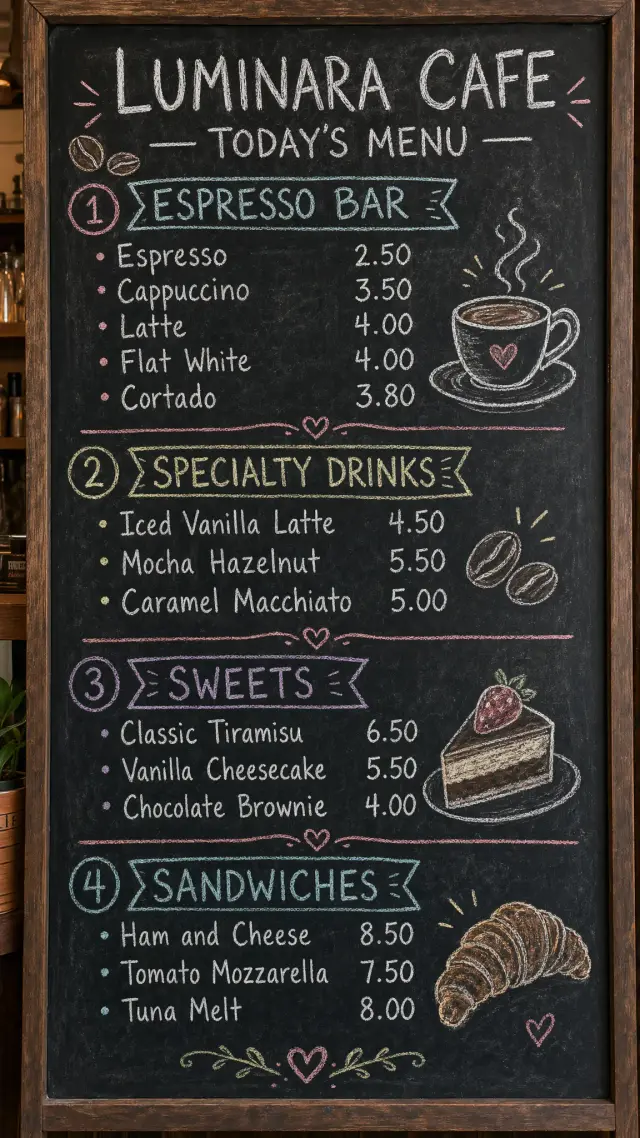 LUMINARA CAFE
— TODAY'S MENU —
1 ESPRESSO BAR
• Espresso 2.50
• Cappuccino 3.50
• Latte 4.00
• Flat White 4.00
• Cortado 3.80
2 SPECIALTY DRINKS
• Iced Vanilla Latte 4.50
• Mocha Hazelnut 5.50
• Caramel Macchiato 5.00
3 SWEETS
• Classic Tiramisu 6.50
• Vanilla Cheesecake 5.50
• Chocolate Brownie 4.00
4 SANDWICHES
• Ham and Cheese 8.50
• Tomato Mozzarella 7.50
• Tuna Melt 8.00